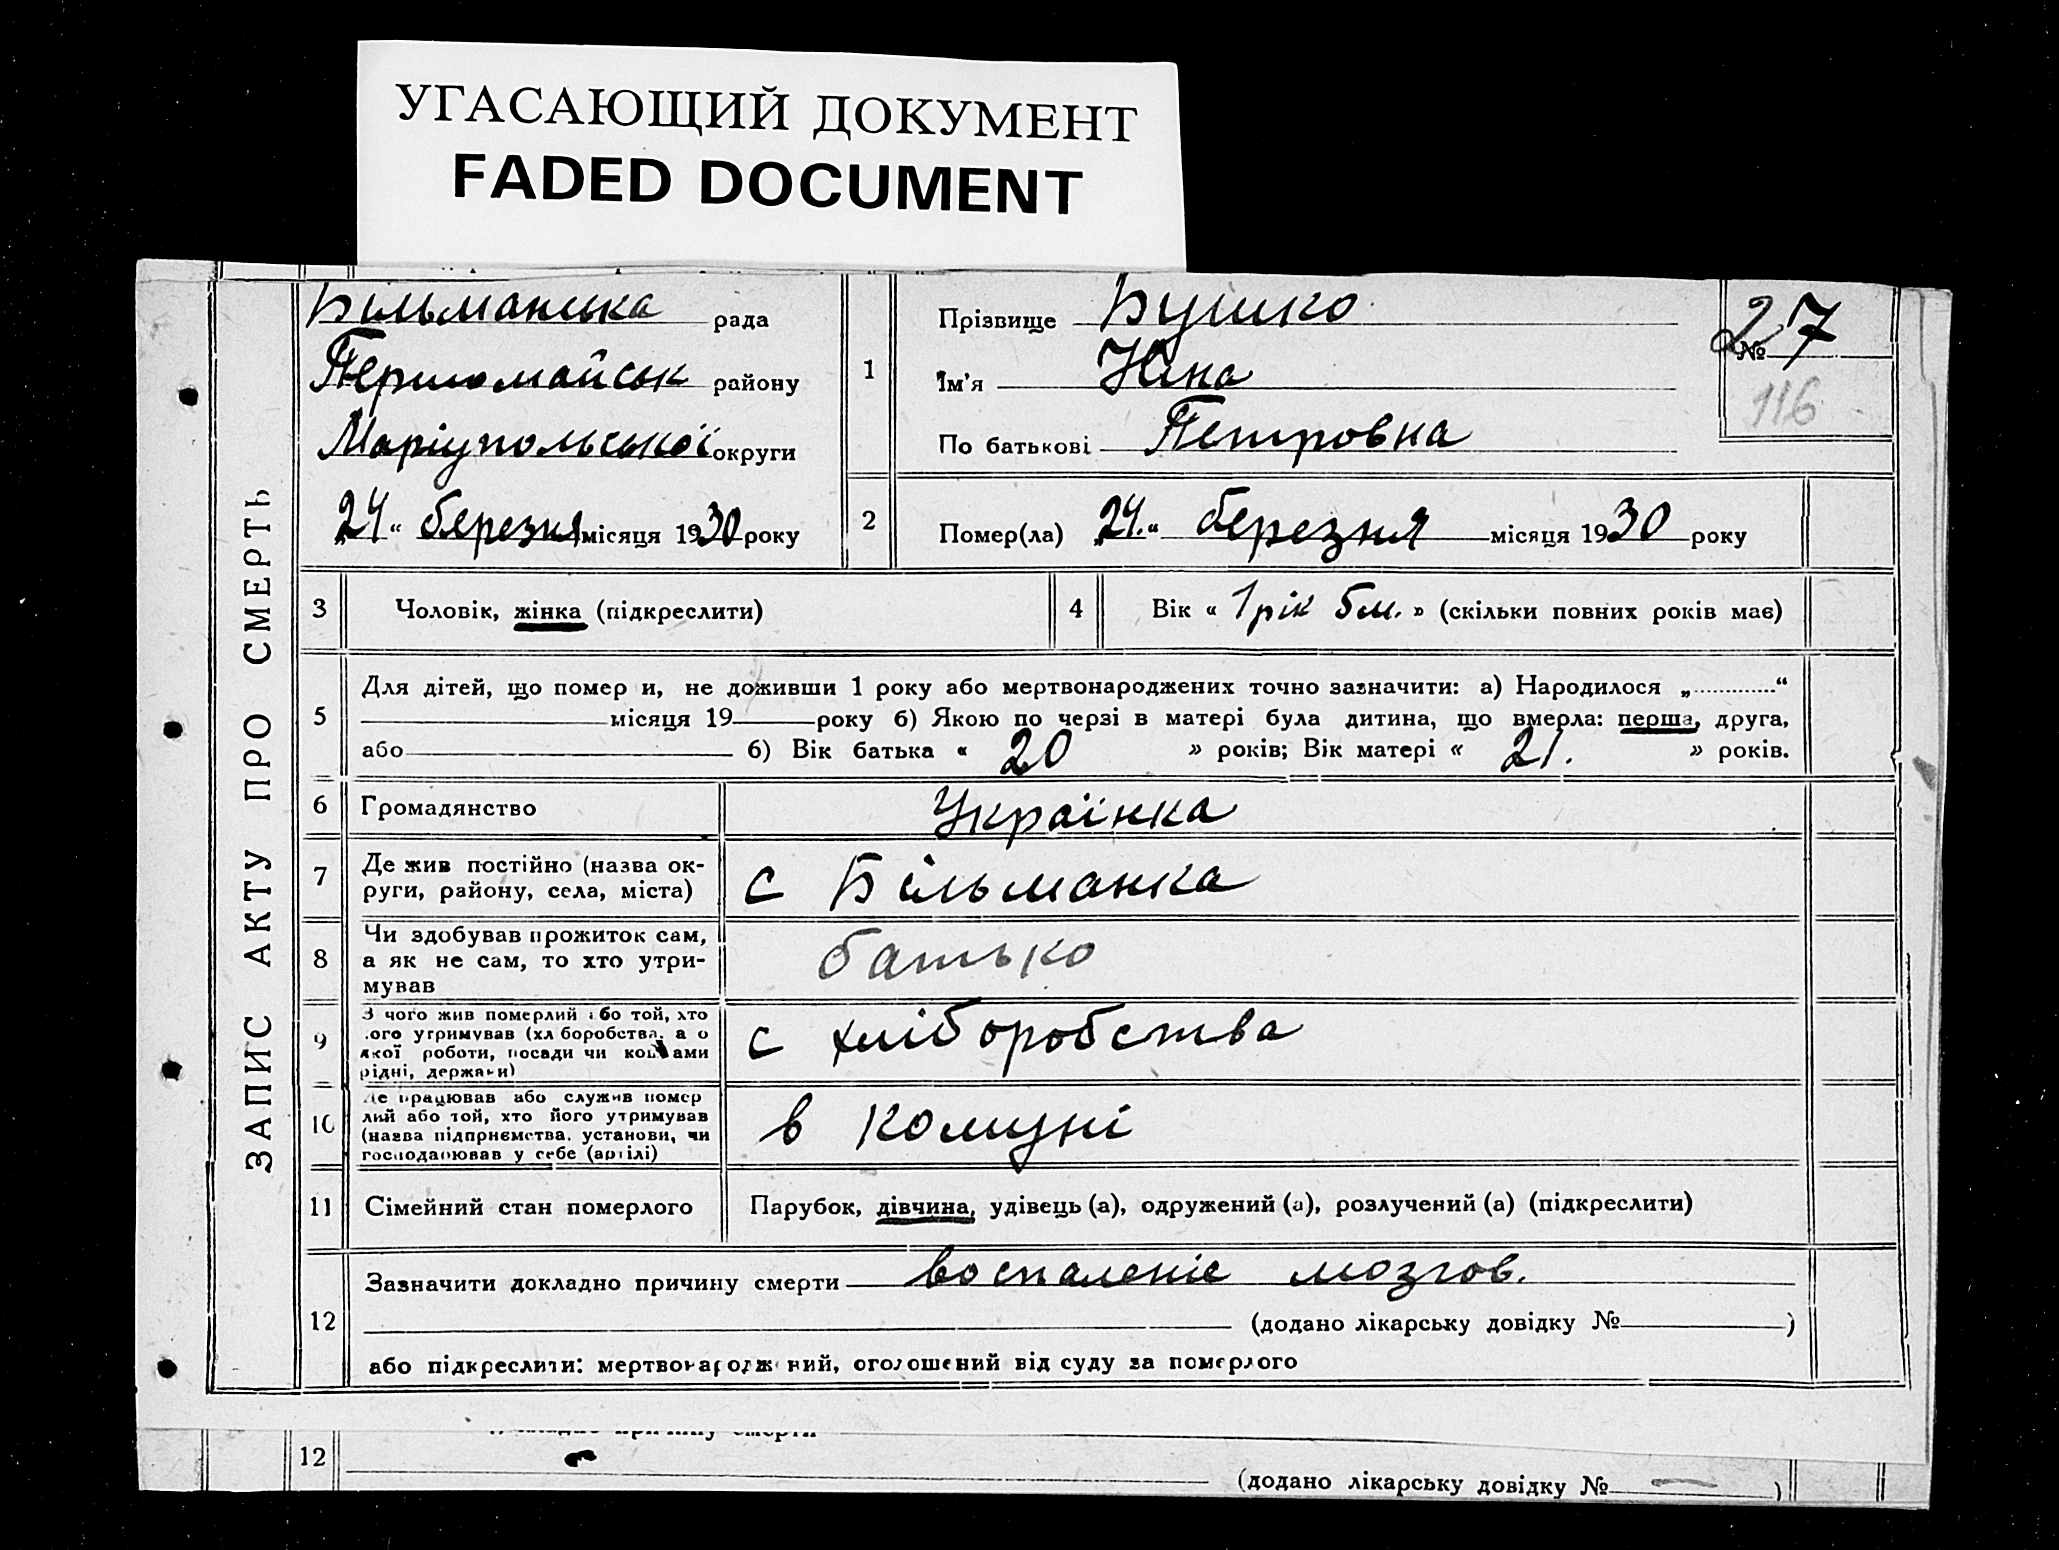 УГАСАЮЩИЙ ДОКУМЕНТ
FADED DOCUMENT
ЗАПИС АКТУ ПРО СМЕРТЬ
Більманська рада
Першомайськ району
Маріупольської округи
„24“ березня місяця 1930 року
1
Прізвище Бушко
Ім'я Ніна
По батькові Петровна
№ 27
116
2 Помер(ла) „24.“ березня місяця 1930 року
3 Чоловік, жінка (підкреслити)
4 Вік « 1 рік 5 м. » (скільки повних років має)
5
Для дітей, що помер и, не доживши 1 року або мертвонароджених точно зазначити: а) Народилося „............“
місяця 19 року б) Якою по черзі в матері була дитина, що вмерла: перша, друга,
або 6) Вік батька « 20 » років; Вік матері « 21. » років.
6 Громадянство Українка
7 Де жив постійно (назва ок-
руги, району, села, міста)
с Більманка
8 Чи здобував прожиток сам,
а як не сам, то хто утри-
мував
батько
9 З чого жив померлий або той, хто
його утримував (хліборобства, а о
якої роботи, посади чи коштами
рідні, держави)
с хліборобства
10 Де працював або служив помер
лий або той, хто його утримував
(назва підприємства, установи, чи
господарював у себе (артілі)
в комуні
11 Сімейний стан померлого Парубок, дівчина, удівець (а), одружений (а), розлучений (а) (підкреслити)
12
Зазначити докладно причину смерти воспаленіе мозгов.
(додано лікарську довідку № )
або підкреслити: мертвонароджений, оголошений від суду за померлого
причину смерти
12
(додано лікарську довідку № )